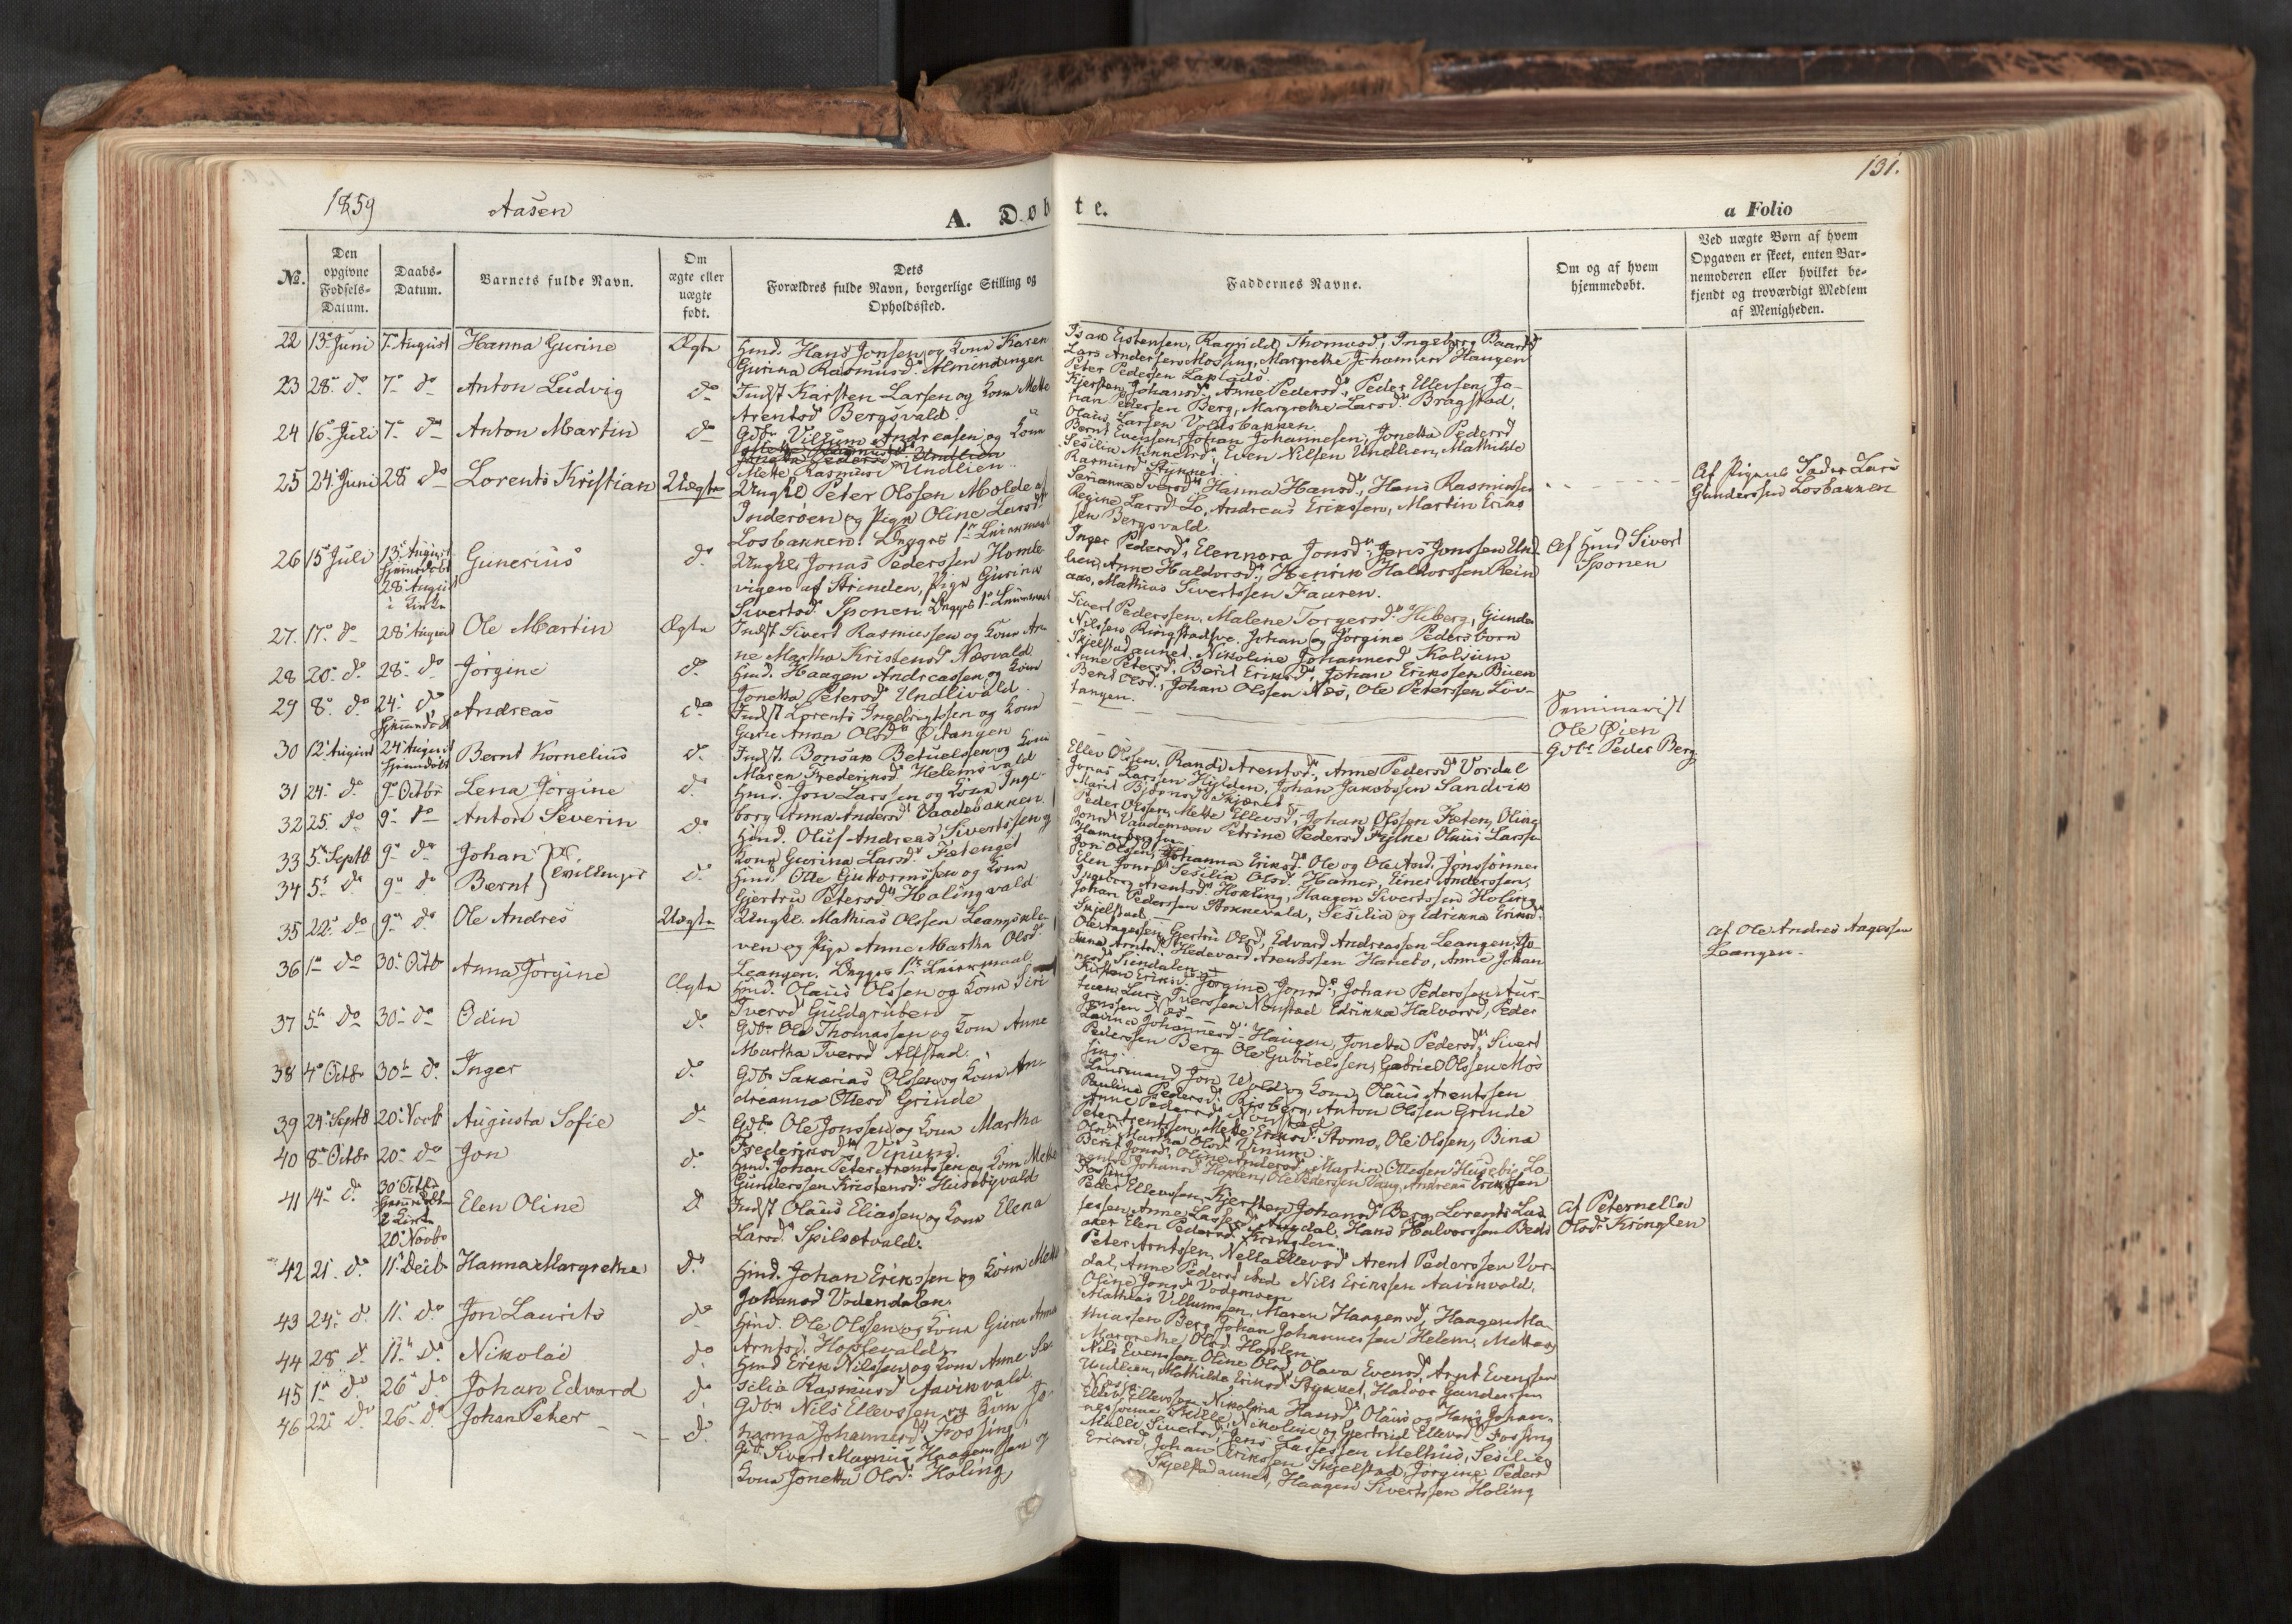 131.
1859 Aasen A. Døbte. a Folio
No.
Den opgivne Fødsels-Datum.
Daabs-Datum.
Barnets fulde Navn.
Om ægte eller uægte født.
Dets Forældres fulde Navn, borgerlige Stilling og Opholdssted.
Faddernes Navne.
Om og af hvem hjemmedøbt.
Ved uægte Børn af hvem Opgaven er skeet, enten Barnemoderen eller hvilket bekjendt og troværdigt Medlem af Menigheden.
22 13de Juni 7. August Hanna Gurine Ægte Hmd. Hans Jonsen og Kone Karen
Gurina Rasmusd. Almindingen
Isak Eistensen, Ragnild Thomasd, Ingeborg Baardsd
Lars Andersen Mossing, Margrethe Johannesd Haugen
Peter Pedersen Laplads.
23 28de do 7de do Anton Ludvig do Indst Karsten Larsen og Kone Mette
Arentsd Bergsvald.
Kjersten Johansd, Anne Pedersd, Peder Ellevsen, Jo-
han Pedersen Berg, Margrethe Larsd Bragstad,
Olaus Larsen Voldsbakken.
24 16de Juli 7de do Anton Martin do Gdbr. Villum Andreasen og Kone
Jonetta Pedersd Undlien
Mette Rasmusd Undlien.
Bernt Evensen, Johan Johannesen, Jonetta Pedersd
Sesilia Monnesd, Even Nilsen Undlien, Mathilde
Rasmusd Stykket.
25 24de Juni 28 do Lorents Kristian Uægte Ungkl Peter Olssen Molde af
Inderøen og Pige Oline Larsd
Losbakken. Begges 1ste Leiermaal
Hanna Hansd, Hans Rasmussen
Regine Larsd Lo, Andreas Erikssen, Martin Eriks
sen Bergsvald.
Af Pigens Fader Lars
Gunderssen Losbakken
26 15de Juli 13de August
hjemmedøbt
28 August
i Kirke
Gunerius do Ungkl Jonas Pederssen Homle-
vigen af Strinden, Pige Gurine
Sivertsd. Sponen. Begges 1ste Leiermaal
Inger Pedersd, Elennora Jonsd, Jens Jonssen Und-
lien, Anne Haldorsd, Henrik Haldorssen Rein
aas, Mathias Sivertssen Faaren.
Af Hmd Sivert
Sponen
27. 17de do 28de August Ole Martin Ægte Indst Sivert Rasmussen og Kone An-
ne Martha Kristensd Næsvald.
Sivert Pederssen, Malene Torgersd Hiberg, Gunder
Nilssen Ringstadsve, Johan og Jørgine Pedersbørn
Skjelstadaunet. Nikoline Johannesd Kolsum
28 20de do 28de do Jørgine do Hmd. Haagen Andreassen og Kone
Jonetta Petersd Undlivald.
Anne Petersd, Berit Eriksd, Johan Erikssen Buen
Berit Olsd, Johan Olssen Næs, Ole Peterssen Løv-
tangen.
29 8de do 24de do
hjemmedøbt
Andreas do Indst Lorents Ingebrigtssen og Kone
Gurine Anna Olsd Østangen
Seminarist
Ole Øien
30 12de August 24de August
hjemmedøbt
Bernt Kornelius do Indst. Bonsak Betuelssen og Kone
Maren Frederiksd Helemsvald
Gdbr Peder Berg
31 24de do 9de Octbr Lena Jørgine do Hmd. Jon Larssen og Kone Inge-
borg Anna Andersd Vaadebakken.
Ellev Olssen, Randi Arentsd, Anne Pedersd Vordal
Jonas Larssen Hylden, Johan Jakobssen Sandvik
Marit Bjørnsd Skjæret
32 25 do 9de do Anton Severin do Hmd. Oluf Andreas Sivertssen og
Kone Gurina Larsd. Fætenget
Peder Olssen, Mette Ellevsd, Johan Olssen Fæten, Oline
Jonsd Vaademoen Petrine Pedersd Fylke Olaus Larssen
33 5te Septb 9de do Johan } Tvillinger
34 5te do 9de do Bernt
do Hmd. Otte Guttormssen og Kone
Gjertru Petersd Holingvald
Jon Olssen, Johanna Eriksd. Ole og Ole And. Jonssønner
Elen Jonsd Sesilia Olsd. Hamer, Einer Anderssen,
Ingeborg Arentsd Hokling, Haagen Sivertssen Holing
Johan Pederssen Stokkevald, Sesilia og Edrikka Eriksd.
Skjelstad
35 22de do 9de do Ole Andres Uægte Ungkl. Mathias Olssen Leangskle-
ven og Pige Anne Martha Olsd.
Leangen. Begges 1ste Leiermaal.
Ole Aagessen, Gjertru Olsd, Edvard Andreassen Leangen, Jo-
hana Arntsd, Hedevard Arentssen Hameto, Anne Johan
nesd Sundalen
Af Ole Andres Aagessen
Leangen.
36 1ste do 30te Octb Anna Jørgine Ægte Hmd. Olaus Olssen og Kone Siri
Iversd Guldgruben
Kirsten Eriksd. Jørgine Jonsd, Johan Pederssen Aur-
tuen, Lars Iverssen Nonstad Edrikka Halvorsd, Peder
Jonssen Næs
37 5te do 30te do Odin do Gdbr. Ole Thomassen og Kone Anne
Martha Iversd Alfstad.
Lavina Johannesd Haugen, Jonetta Pedersd, Sivert
Pederssen Berg Ole Gabrielssen, Gabriel Olssen Mos
sing
38 4de Octbr 30te do Inger do Gdbr Sakarias Olssen og Kone An-
dreanna Ottersd Grinde
Lensmand Jon Wold og Kone, Olaus Arentssen
Pauline Pedersd Risberg, Anton Olssen Grinde
Anne Pedersd Nonstad
39 24de Septb 20de Novb Augusta Sofie do Gdbr Ole Jonssen og Kone Martha
Frederiksd Vinum.
Peter Arentssen, Mette Eriksd. Stomo, Ole Olssen, Bina
Olsd Martha Olsd Vinum
40 8de Octbr 20de do Jon do Hmd. Johan Peter Arentssen og Kone Mette
Gunderssen Kristensd Husebyvald
Berit Jonsd, Oline Andersd, Martin Ottessen Husebie, Lo
rents Johansd Hoplen, Ole Pederssen Vaag, Andreas Erikssen
Fossing
41 14de do 30 Octbr
hjemmedøbt
i Kirke
20de Novbr
Elen Oline do Indst Olaus Eliassen og Kone Elena
Larsd. Spilsetvald.
Peder Ellevssen, Kjersten Johansd Berg, Lorents Las
sessen, Anne Lassesd Augdal, Hans Halvorssen Beds
aker Elen Pedersd Kringlen.
Af Peternella
Olsd. Kringlen
42 21de do 11te Decb Hanna Margrethe do Hmd. Johan Erikssen og Kone Mette
Johansd Vodendalen.
Peter Arntssen, Nella Ellevsd Arent Pederssen Vor-
dal, Anne Pedersd And Nils Erikssen Aavikvald,
Oline Jonsd Vodemoen
43 24de do 11te do Jon Laurits do Hmd. Ole Olssen og Kone Gura Anna
Arntsd. Hoplevald.
Mathias Villumssen, Maren Haagensd, Haagen Ma-
thiassen Berg Johan Johannessen Helem, Mette og
Margrethe Olsd Hoplen
44 28 do 11te do Nikolai do Hmd Erik Nilssen og Kone Anne Se-
silia Rasmusd Aavikvald.
Nils Evenssen Oline Olsd, Olava Evensd, Arnt Evenssen
Undlien, Mathilde Eriksd Stykket, Halvor Gunderssen
45 1ste do 26de do Johan Edvard do Gdbr Nils Ellevssen og Kone Jo-
hanna Johannesd Fossing
Ellev Ellevssen Nikolina Hansd, Olaus og Hans Johan-
nessønner Fidle, Nikoline og Gjertrud Ellevsd Fossing
46 22de do 26de do Johan Peter do Gdbr Sivert Magnus Haagenssen og
Kone Jonetta Olsd. Holing
Malli Sivertsd, Jens Lassessen Melhus, Sesilie
Eriksd, Johan Erikssen Skjelstad, Jørgine Pedersd
Skjelstadaunet, Haagen Sivertssen Holing